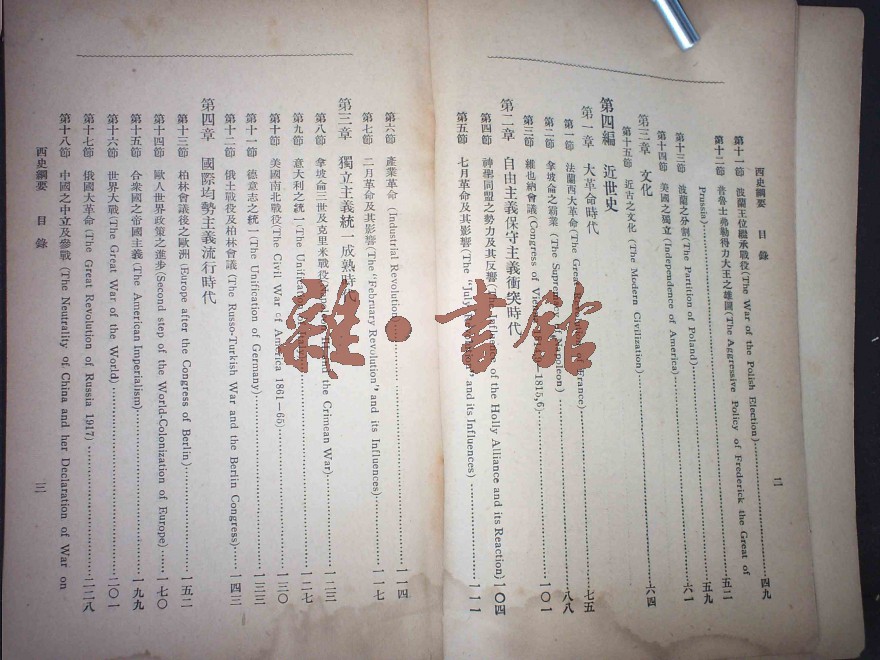 西史綱要 目錄
第十一節 波蘭王位繼承戰役(The War of the Polish Election)……四九
第十二節 普魯士弗勒得力大王之雄圖(The Aggressive Policy of Frederick the Great of
Prussia)……五二
第十三節 波蘭之分割(The Partition of Poland)……五九
第十四節 美國之獨立(Independence of America)……六一
第三章 文化
第十五節 近古之文化(The Modern Civilization)……六四
第四編 近世史
第一章 大革命時代
第一節 法蘭西大革命(The Great of France)……七五
第二節 拿坡侖之霸業(The Napoleon)……八八
第三節 維也納會議(Congress of —1815,6)……一〇一
第二章 自由主義保守主義衝突時代
第四節 神學同盟之勢力及其反響(The of the Holly Alliance and its Reaction)一〇四
第五節 七月革命及其影響(The "July and its Influences)……一一一
第六節 產業革命(Industrial Revolution)……一一四
第七節 二月革命及其影響(The "February Revolution", and its Influences)……一一七
第三章 獨立主義統一成熟時代
第八節 拿坡侖三世及克里米戰役( the Crimean War)……一二三
第九節 意大利之統一(The Unification of ……一二七
第十節 美國南北戰役(The Civil War of America 1861—65)……一三〇
第十一節 德意志之統一(The Unification of Germany)……一三三
第十二節 俄土戰役及柏林會議(The Russo-Turkish War and the Berlin Congress)……一四三
第四章 國際均勢主義流行時代
第十三節 柏林會議後之歐洲(Europe after the Congress of Berlin)……一五二
第十四節 歐人世界政策之進步(Second step of the World-Colonization of Europe)……一七〇
第十五節 合衆國之帝國主義(The American Imperialism)……一九九
第十六節 世界大戰(The Great War of the World)……二〇一
第十七節 俄國大革命(The Great Revolution of Russia 1917)……二二八
第十八節 中國之中立及參戰(The Neutrality of China and her Declaration of War on
西史綱要 目錄 三
雜·書館